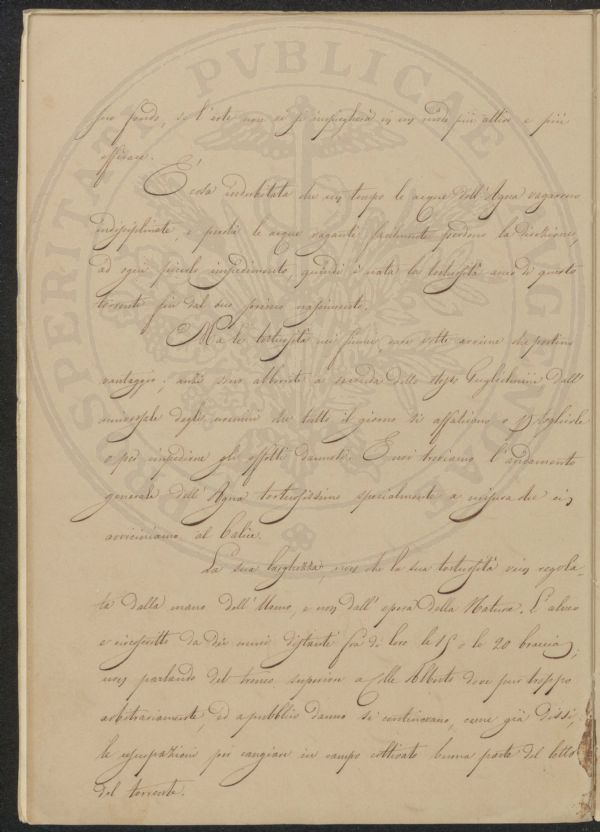 suo fondo, se l'arte non vi s'impiegherà in un modo più attivo e più
efficace.
È cosa indubitata che un tempo le acque dell'Agna vagarono
indisciplinate, e perché le acque vaganti facilmente perdono la direzione,
ad ogni piccolo impedimento, quindi è nata la tortuosità anco di questo
torrente fin dal suo primiero nascimento.
Ma le tortuosità nei fiumi, rare volte avviene che portino
vantaggio; anzi sono abborrite a seconda dello stesso Guglielmini dall'
universale degli uomini che tutto il giorno si affaticano o p toglierle
o per impedirne gli effetti dannosi. E noi troviamo l'andamento
generale dell'Agna tortuosissimo specialmente a misura che ci
avviciniamo al Calice.
La sua larghezza, non che la sua tortuosità vien regola-
ta dalla mano dell'Uomo, e non dall'opera della Natura. L'alveo
è circoscritto da due muri distanti fra di loro le 15 o le 20 braccia,
non parlando del tronco superiore a Colle Alberto dove pur troppo
arbitrariamente, ed a pubblico danno si continovano, come già dissi,
le usurpazioni per cangiare in campo coltivato buona parte del letto
del torrente.
PROSPERITATI PVBLICAE AVGENDAE